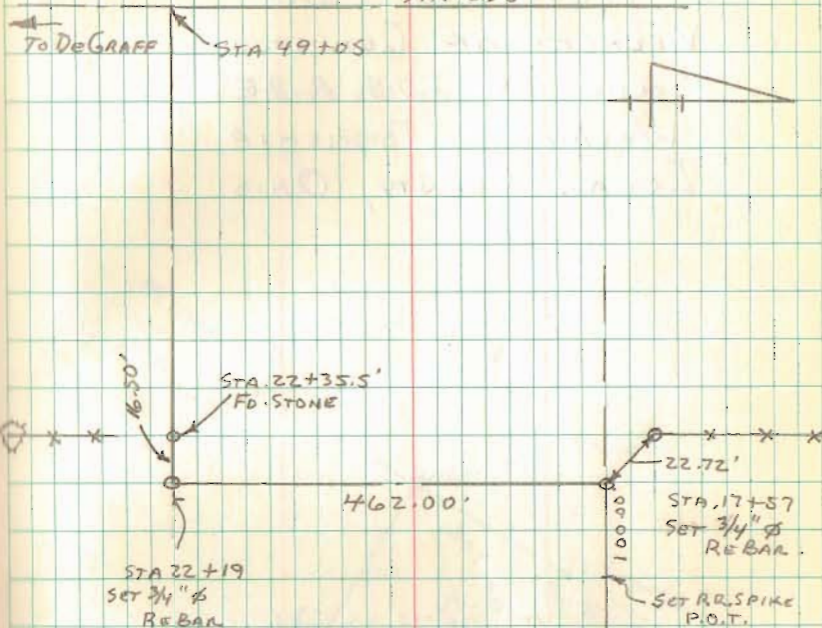 TO DEGRAFF
STA 49+05
16.50'
STA. 22+35.5'
FD. STONE
22.72'
462.00'
STA. 17+57
SET 3/4" Ø
REBAR.
STA 22+19
SET 3/4" Ø
REBAR
SET R.R. SPIKE
P.O.T.